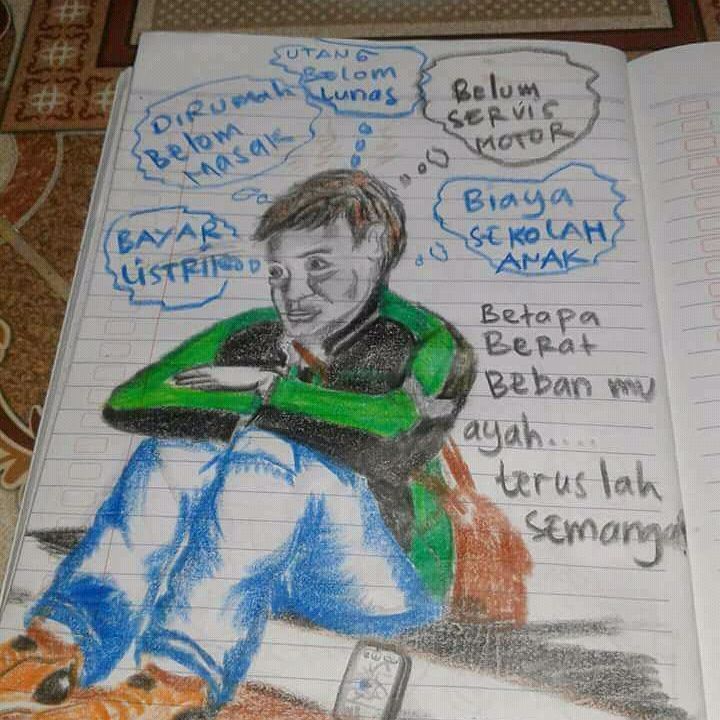 UTANG
Belom
Lunas
Belum
SERVIS
MOTOR
DIRUMAH
Belom
MASAK
Biaya
SEKOLAH
ANAK
BAYAR
LISTRIK
Betapa
Berat
Beban mu
ayah....
terus lah
semangat